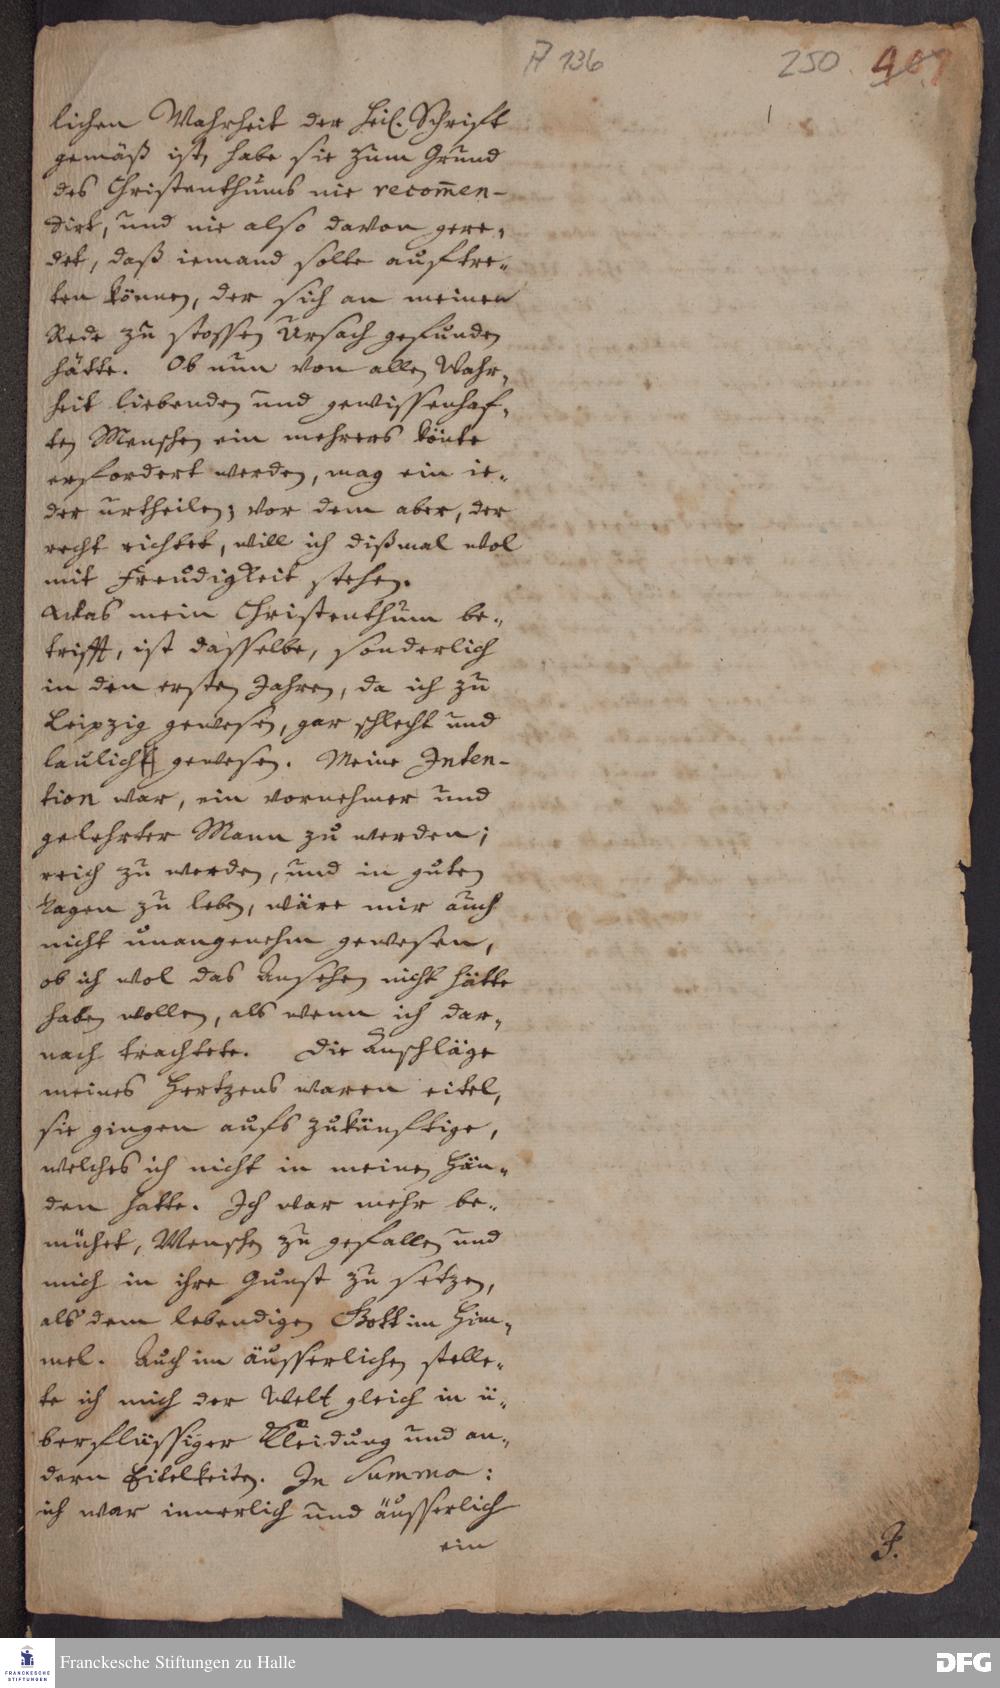 A 136
250 401
1
lichen Wahrheit der Heil. Schrifft
gemäß ist, habe sie zum Grund
des Christenthums nie recom̄en-
dirt, und nie also davon gere-
det, daß iemand solte auftre-
ten können, der sich an meiner
Rede zu stossen Ursach gefunden
hätte. Ob nun von allen Wahr-
heit liebenden und gewissenhaf-
ten Menschen ein mehrers könte
erfordert werden, mag ein ie-
der urtheilen; vor dem aber, der
recht richtet, will ich dißmal wol
mit Freudigkeit stehen.
Was mein Christenthum be-
trifft, ist dasselbe, sonderlich
in den ersten Jahren, da ich zu
Leipzig gewesen, gar schlecht und
laulicht gewesen. Meine Inten-
tion war, ein vornehmer und
gelehrter Mann zu werden;
reich zu werden, und in guten
Tagen zu leben, wäre mir auch
nicht unangenehm gewesen,
ob ich wol das Ansehen nicht hätte
haben wollen, als wenn ich dar-
nach trachtete. Die Anschläge
meines Hertzens waren eitel,
sie gingen aufs zukünftige,
welches ich nicht in meinen Hän-
den hatte. Ich war mehr be-
mühet, Menschen zu gefallen und
mich in ihre Gunst zu setzen,
als dem lebendigen Gott im Him-
mel. Auch im äusserlichen stelle-
te ich mich der Welt gleich in ü-
berflüssiger Kleidung und an-
dern Eitelkeiten. In Summa:
ich war innerlich und äusserlich
ein
J.
Franckesche Stiftungen zu Halle
FRANCKESCHE
STIFTUNGEN
DFG